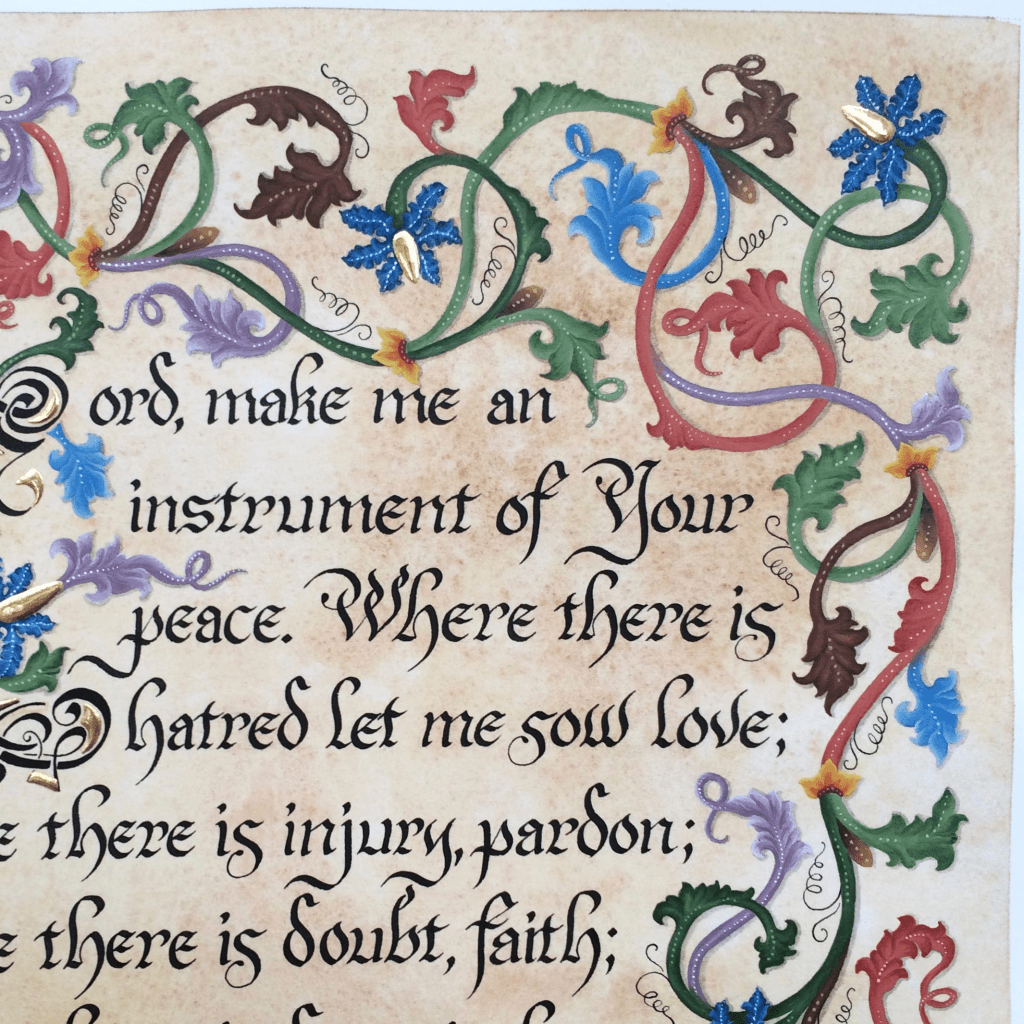 ord, make me an
instrument of Your
peace. Where there is
hatred let me sow love;
e there is injury, pardon;
e there is doubt, faith;